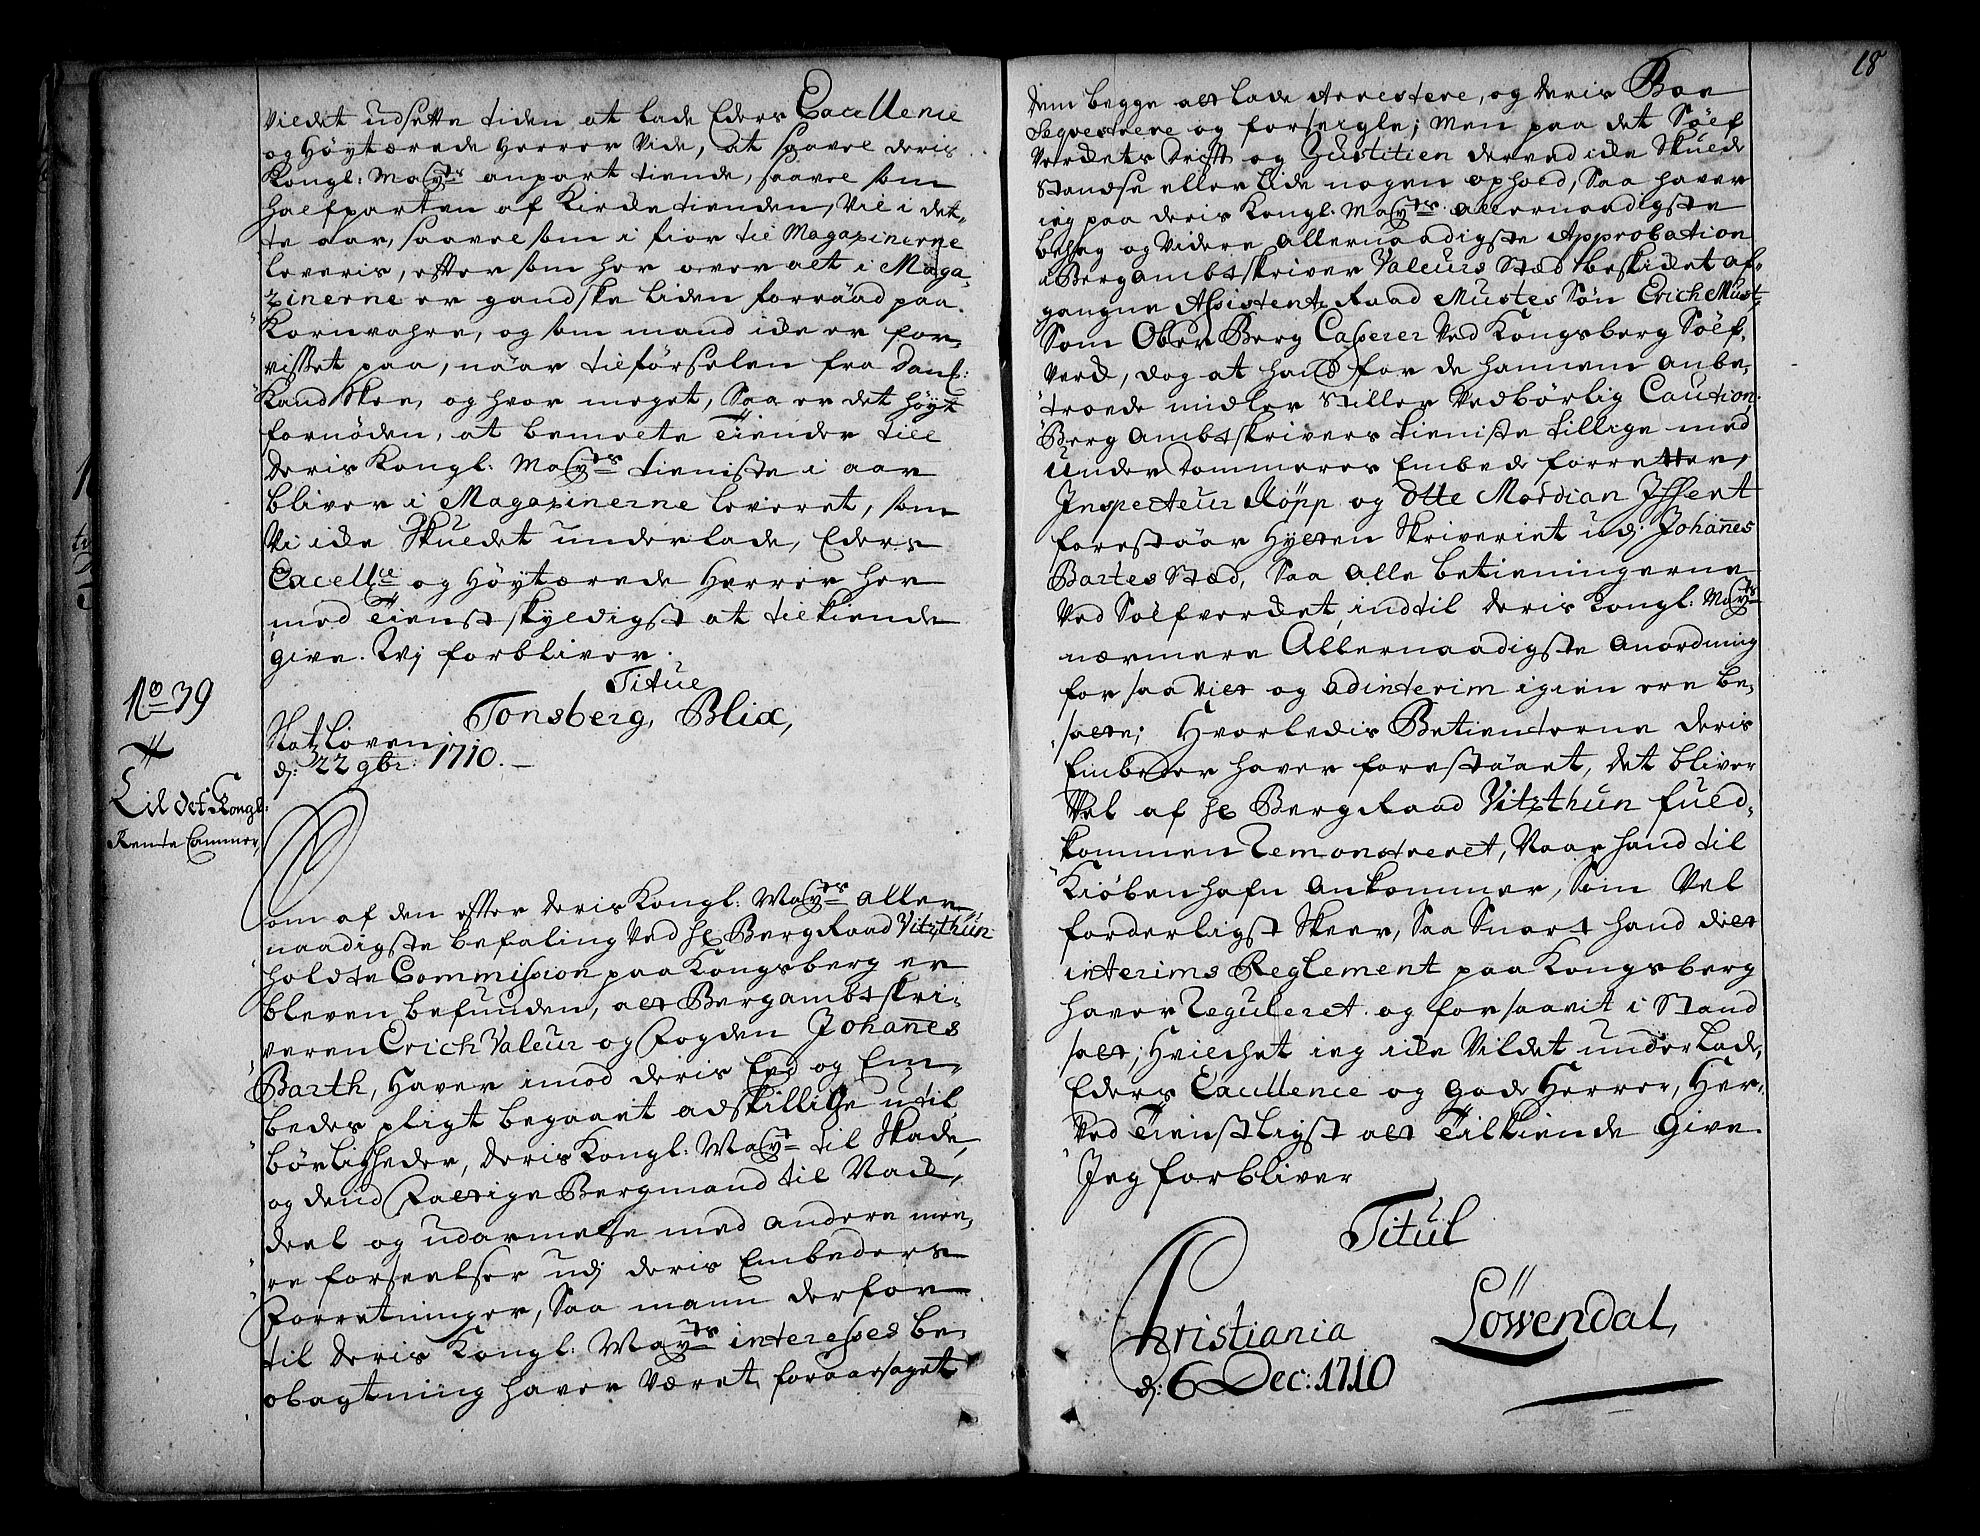 Villet udsette tiden at lade Eders Excellence
og Høytærede Herrer Vide, at saavel deris
Kongl: Mayts anpart tiende, saavel som
halfparten af Kircketienden, Vil i det-
te aar, saavelsom i fior til Magazinerne
leveris, efter som her over alt i Maga-
zinerne er gandske liden forraad paa
Kornvahre, og som mand icke er for-
visset paa, naar tilførselen fra Dan-
kand skee, og hvor meget, Saa er det høyt
fornøden, at bemelte Tiender till
deris Kongl: Mayts tieniste i aar
bliver i Magazinerne leveret, som
Vi icke Skulet underlade, Eders
Excellce og Høytærede Herrer her
med Tienstskyldigst at tilkiende
give. Wj forbliver.
Titul
Tonsberg, Blix,
Slotzloven
d: 22 9br: 1710.
No 39
Til det Kongl:
Rente Cammer,
Som af den efter deris Kongl: Mayts aller-
naadigste befaling Ved Hr BergRaad Vitzthun
holdte Commission paa Kongsberg er
bleven befunden, at Bergambtskri-
veren Erich Valeur og Fogden Johannes
Barth, Haver imod deris Eed og Em-
bedes pligt begaaet adskillige util-
børligheder, deris Kongl: Mayt til Skade,
og dend Fattige Bergmand til Nac-
deel og udarmelse med andere mee-
re forseelser udj deris Embeders
Forretninger, Saa mann derfor
til deris Kongl: Mayts interesses be-
obagtning haver Været foraarsaget
18
dem begge at lade Arrestere, og deris Boe
Seqvestrere og forseigle; Men paa det Sølf
Verckets drift og Justitien derved icke Skulde
Standse eller lide nogen ophold, Saa haver
ieg paa deris Kongl: Mayts allernaadigste
behag og Videre allernaadigste Approbation
i Bergambtskriver Valeurs Stæd beskicket af-
gangne Assistents Raad Mustes Søn Erich Must
Som Ober Berg Casserer Ved Kongsberg Sølf-
Verck, dog at hand for de hannem anbe-
troede midler Stiller Vedbørlig Caution;
Berg Ambtskrivers tieniste tillige med
Under dommeres Embede forretter,
Inspecteur Röpp og Otte Mordian Issent
forestaar Hytten Skriveriet udj Johannes
Bartes Stæd, Saa alle betieningerne
Ved Sølfvercket, indtil deris Kongl: Mayts
nærmere Allernaadigste anordning
for saa Vit og adinterim igien ere be-
satte; Hvorledis Betienterne deris
Embeder haver forestaaet, det bliver
Vel af Hr BergRaad Vitzthun fuld-
kommen Remonstreret, Naar hand til
Kiøbenhafn ankommer, Som Vel
forderligst Skeer, Saa Snart hand det
interims Reglement paa Kongsberg
haver Reguleret og forsaavit i Stand
sat; Hvilchet ieg icke Vildet underlade,
Eders Excellence og gode Herrer, Her-
Ved Tienstligst at Tilkiende Give.
Jeg forbliver
Titul
Christiania
d: 6 Dec: 1710
Löwendal,